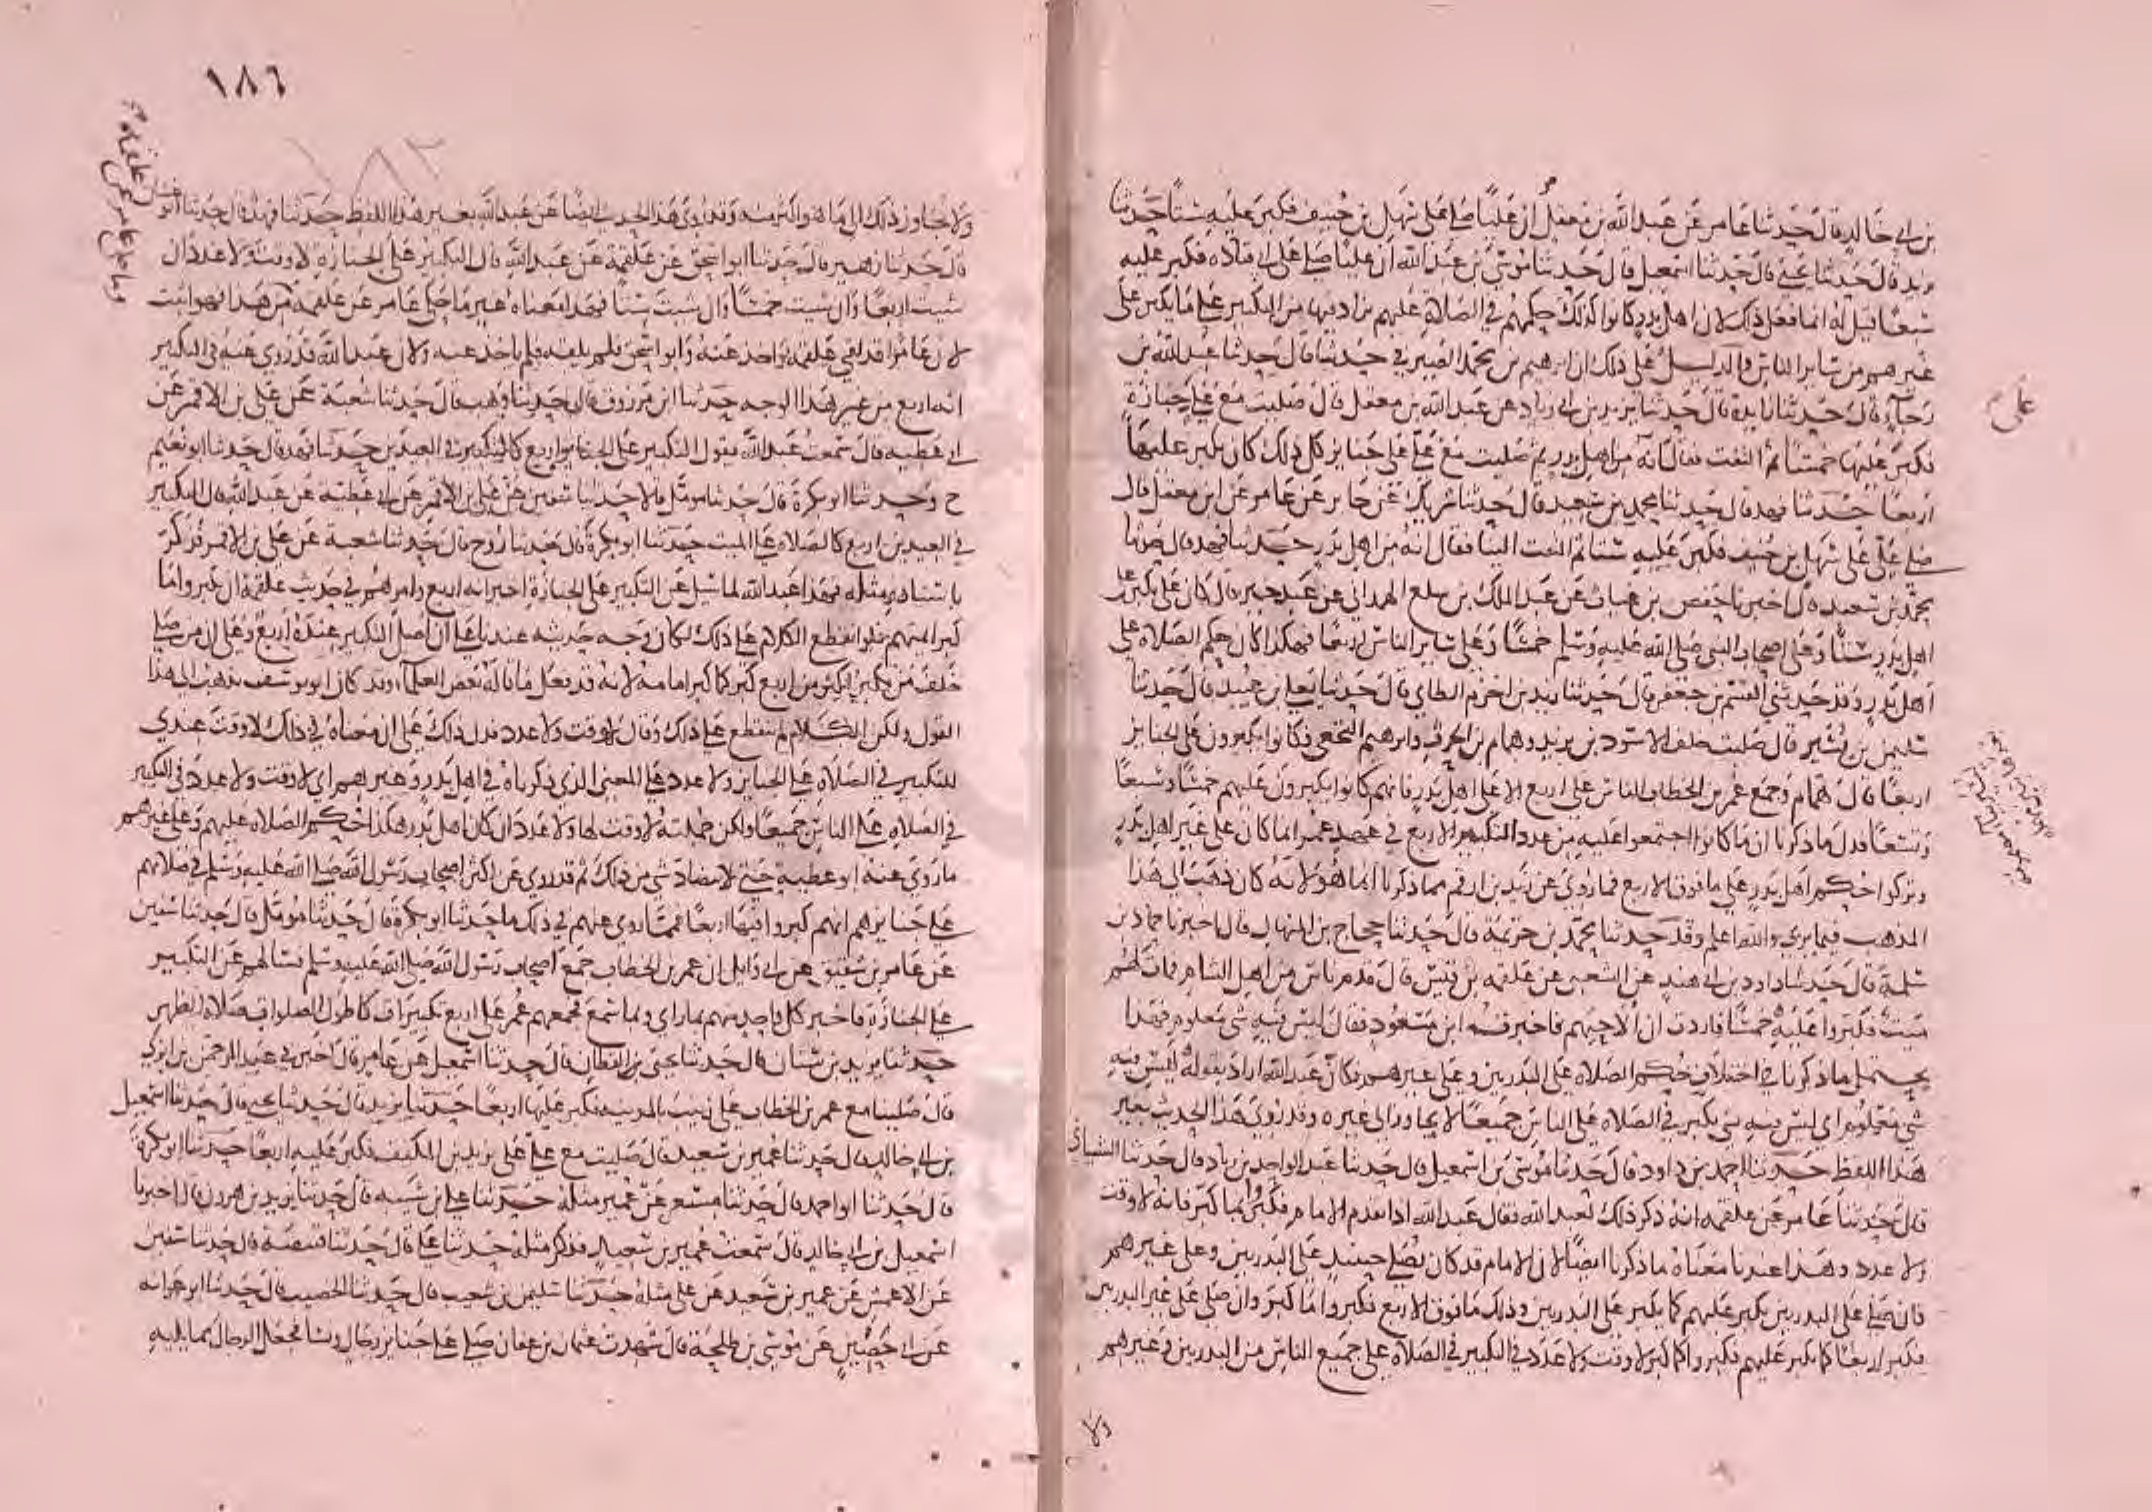 بن ابي خالد قال حدثنا عامر عن عبد الله بن معقل ان عليا صلى على سهل بن حنيف فكبر عليه ستا حدثنا
يزيد قال حدثنا يحيى قال حدثنا اسمعيل قال حدثنا موسى بن عبد الله ان عليا صلى على ابي قتاده فكبر عليه
سبعا فقيل له انما فعل ذلك لان اهل بدر كانوا كذلك حكمهم في الصلاة عليهم يزاد فيها من التكبير على ما يكبر على
غيرهم من سائر الناس والدليل على ذلك ان ابرهيم بن محمد الصيرفي حدثنا قال حدثنا عبد الله بن
رجاء قال حدثنا زايدة قال حدثنا يزيد بن ابي زياد عن عبد الله بن معقل قال صليت مع علي على جنازة
فكبر عليها خمسا ثم التفت فقال انه من اهل بدر ثم صليت مع علي على جنايز كل ذلك كان يكبر عليها
اربعا حدثنا فهد قال حدثنا محمد بن سعيد قال حدثنا شريك عن جابر عن عامر عن ابن معقل قال
صلى علي على سهل بن حنيف فكبر عليه ستا ثم التفت الينا فقال انه من اهل بدر حدثنا فهد قال حدثنا
محمد بن سعيد قال اخبرنا حفص بن غياث عن عبد الملك بن سلع الهمداني عن عبد خير قال كان علي يكبر على
اهل بدر ستا وعلى اصحاب النبي صلى الله عليه وسلم خمسا وعلى سائر الناس اربعا فهكذا كان حكم الصلاة على
اهل بدر وقد حدثني القسم بن جعفر قال حدثنا زيد بن اخزم الطاي قال حدثنا يعلى بن عبيد قال حدثنا
سليمن بن بشير قال صليت خلف الاسود بن يزيد وهمام بن الحرث وابرهيم النخعي فكانوا يكبرون على الجنايز
اربعا قال همام وجمع عمر بن الخطاب الناس على اربع الا على اهل بدر فانهم كانوا يكبرون عليهم خمسا وسبعا
وتسعا فدل ما ذكرنا ان ما كانوا اجتمعوا عليه من عدد التكبير الاربع في عهد عمر انما كان على غير اهل بدر
وتركوا حكم اهل بدر على ما فوق الاربع فما روي عن زيد بن ارقم مما ذكرنا انما هو لانه كان ذهب الى هذا
المذهب فيما يرى والله اعلم وقد حدثنا محمد بن خزيمة قال حدثنا حجاج بن المنهال قال اخبرنا حماد بن
سلمة قال حدثنا داود بن ابي هند عن الشعبي عن علقمه بن قيس قال قدم ناس من اهل الشام فمات لهم
ميت فكبروا عليه خمسا فاردت ان الاحيهم فاخبرت ابن مسعود فقال ليس فيه شي معلوم فهذا
يحتمل ما ذكرنا في اختلاف حكم الصلاة على البدريين وعلى غيرهم فكان عبد الله اراد بقوله ليس فيه
شي معلوم اي ليس فيه شي يكبر في الصلاه على الناس جميعا لا يجاوز الى غيره وقد روي هذا الحديث بغير
هذا اللفظ حدثنا احمد بن داود قال حدثنا موسى بن اسمعيل قال حدثنا عبد الواحد بن زياد قال حدثنا الشيباني
قال حدثنا عامر عن علقمه انه ذكر ذلك لعبد الله فقال عبد الله اذا تقدم الامام فكبروا بما كبر فانه لا وقت
ولا عدد وهذا عندنا معناه ما ذكرنا ايضا لان الامام قد كان يصلي حينيذ على البدريين وعلى غيرهم
فان صلى على البدريين يكبر عليهم كما يكبر على البدريين وذلك ما فوق الاربع فكبروا ما كبر وان صلى على غير البدريين
فكبر اربعا كما يكبر عليهم فكبروا كما كبر لا وقت ولا عدد في التكبير في الصلاة على جميع الناس من البدريين وغيرهم
ولا
على
١٨٦
١٨٣
ولا يجاوز ذلك الى ما هو اكثر منه وقد روي هذا الحديث ايضا عن عبد الله بغير هذا اللفظ حدثنا فهد قال حدثنا ابو غسان
قال حدثنا زهير قال حدثنا ابو اسحق عن علقمة عن عبد الله قال التكبير على الجنازة لا وقت ولا عدد ان
شيت اربعا وان شيت خمسا وان شيت ستا فهذا معناه غير ما حكى عامر عن علقمه من هذا فهو اثبت
لان عامرا قد لقي علقمة واخذ عنه وابو اسحق فلم يلقه فلم ياخذ عنه ولان عبد الله قد روي عنه في التكبير
انه اربع من غير هذا الوجه حدثنا ابن مرزوق قال حدثنا وهب قال حدثنا شعبة عن علي بن الاقمر عن
ابي عطيه قال سمعت عبد الله يقول التكبير على الجنايز اربع كالتكبير في العيدين حدثنا فهد قال حدثنا ابو نعيم
ح وحدثنا ابو بكرة قال حدثنا مومل قالا حدثنا سفين عن علي بن الاقمر عن ابي عطية عن عبد الله قال التكبير
في العيدين اربع كالصلاه على الميت حدثنا ابو بكرة قال حدثنا روح قال حدثنا شعبة عن علي بن الاقمر فذكر
باسناده مثله فهذا عبد الله لما سيل عن التكبير على الجنازة اخبر انه اربع وامرهم في حديث علقمة ان يكبروا ما
كبر ايمتهم فلو انقطع الكلام على ذلك لكان وجه حديثه عندنا على ان اصل التكبير عنده اربع وعلى ان من صلى
خلف من يكبر اكثر من اربع كبر كما كبر امامه لانه قد فعل ما قاله بعض العلماء وقد كان ابو يوسف يذهب الى هذا
القول ولكن الكلام لم ينقطع على ذلك وقال لا وقت ولا عدد فدل ذلك على ان معناه في ذلك لا وقت عندي
للتكبير في الصلاة على الجنايز ولا عدد على المعنى الذي ذكرناه في اهل بدر وغيرهم اي لا وقت ولا عدد في التكبير
في الصلاه على الناس جميعا ولكن جملته لا وقت لها ولا عدد ان كان اهل بدر هكذا حكم الصلاه عليهم وعلى غيرهم
ما روى عنه ابو عطية حتى لا يتضاد شي من ذلك ثم قد روي عن اكثر اصحاب رسول الله صلى الله عليه وسلم في صلاتهم
على جنايزهم انهم كبروا فيها اربعا فمما روي عنهم في ذلك ما حدثنا ابو بكرة قال حدثنا مومل قال حدثنا سفين
عن عامر بن شقيق عن ابي وايل ان عمر بن الخطاب جمع اصحاب رسول الله صلى الله عليه وسلم فسالهم عن التكبير
على الجنازة فاخبر كل واحد منهم بما راي وبما سمع فجمعهم عمر على اربع تكبيرات كاطول الصلوات صلاة الظهر
حدثنا يزيد بن سنان قال حدثنا يحيى بن القطان قال حدثنا اسمعيل عن عامر قال اخبرني عبد الرحمن بن ابزى
قال صلينا مع عمر بن الخطاب على زينب بالمدينه فكبر عليها اربعا حدثنا يزيد قال حدثنا يحيى قال حدثنا اسمعيل
بن ابي خالد قال حدثنا عمير بن سعيد قال صليت مع علي على يزيد بن المكفف فكبر عليه اربعا حدثنا ابو بكرة
قال حدثنا ابو احمد قال حدثنا مسعر عن عمير مثله حدثنا علي بن شيبه قال حدثنا يزيد بن هرون قال اخبرنا
اسمعيل بن ابي خالد قال سمعت عمير بن سعيد فذكر مثله حدثنا علي قال حدثنا قبيصة قال حدثنا سفين
عن الاعمش عن عمير بن سعيد عن علي مثله حدثنا سليمن بن شعيب قال حدثنا الخصيب قال حدثنا ابو عوانه
عن ابي حصين عن موسى بن طلحة قال شهدت عثمان بن عفان صلى على جنايز رجال ونسا فجعل الرجال مما يليه